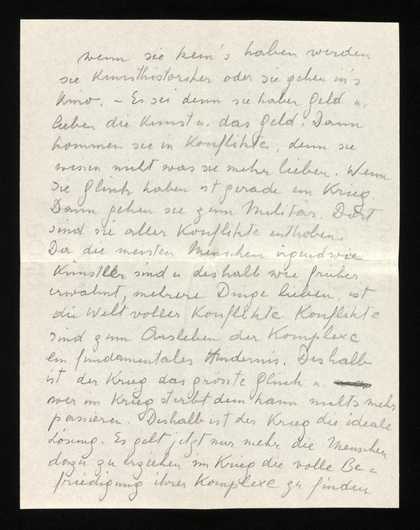 wenn sie kein's haben werden
sie Kunsthistoriker oder sie gehen in's
Kino. – Es sei denn sie haben Geld u.
lieben die Kunst u. das Geld. Dann
kommen sie in Konflikte, denn sie
wissen nicht was sie mehr lieben. Wenn
sie Glück haben ist gerade ein Krieg
Dann gehen sie zum Militär. Dort
sind sie aller Konflikte enthoben.
Da die meisten Menschen irgendwie
Künstler sind u deshalb wie früher
erwähnt, mehrere Dinge lieben, ist
die Welt voller Konflikte Konflikte
sind zum Ausleben der Komplexe
ein fundamentales Hindernis. Deshalb
ist der Krieg das grösste Glück u.
wer im Krieg stirbt dem kann nichts mehr
passieren. Deshalb ist der Krieg die ideale
Lösung. Es gilt jetzt nur mehr die Menschen
dazu zu erziehen im Krieg die volle Be =
friedigung ihrer Komplexe zu finden